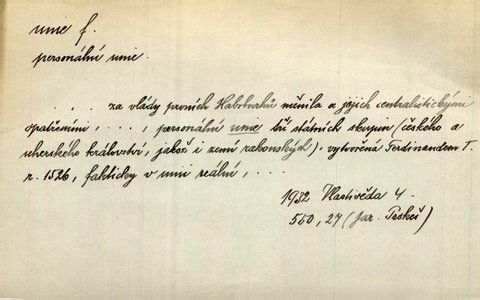 unie f.
personální unie.
. . . za vlády prvních Habsburků měnila se jejich centralistickými
opatřeními, . . . , personální unie tří státních skupin (českého a
uherského království, jakož i zemí rakouských), vytvořená Ferdinandem I.
r. 1526, fakticky v unii reální, . . .
1932 Vlastivěda 4.
550, 27 (Jar. Prokeš)